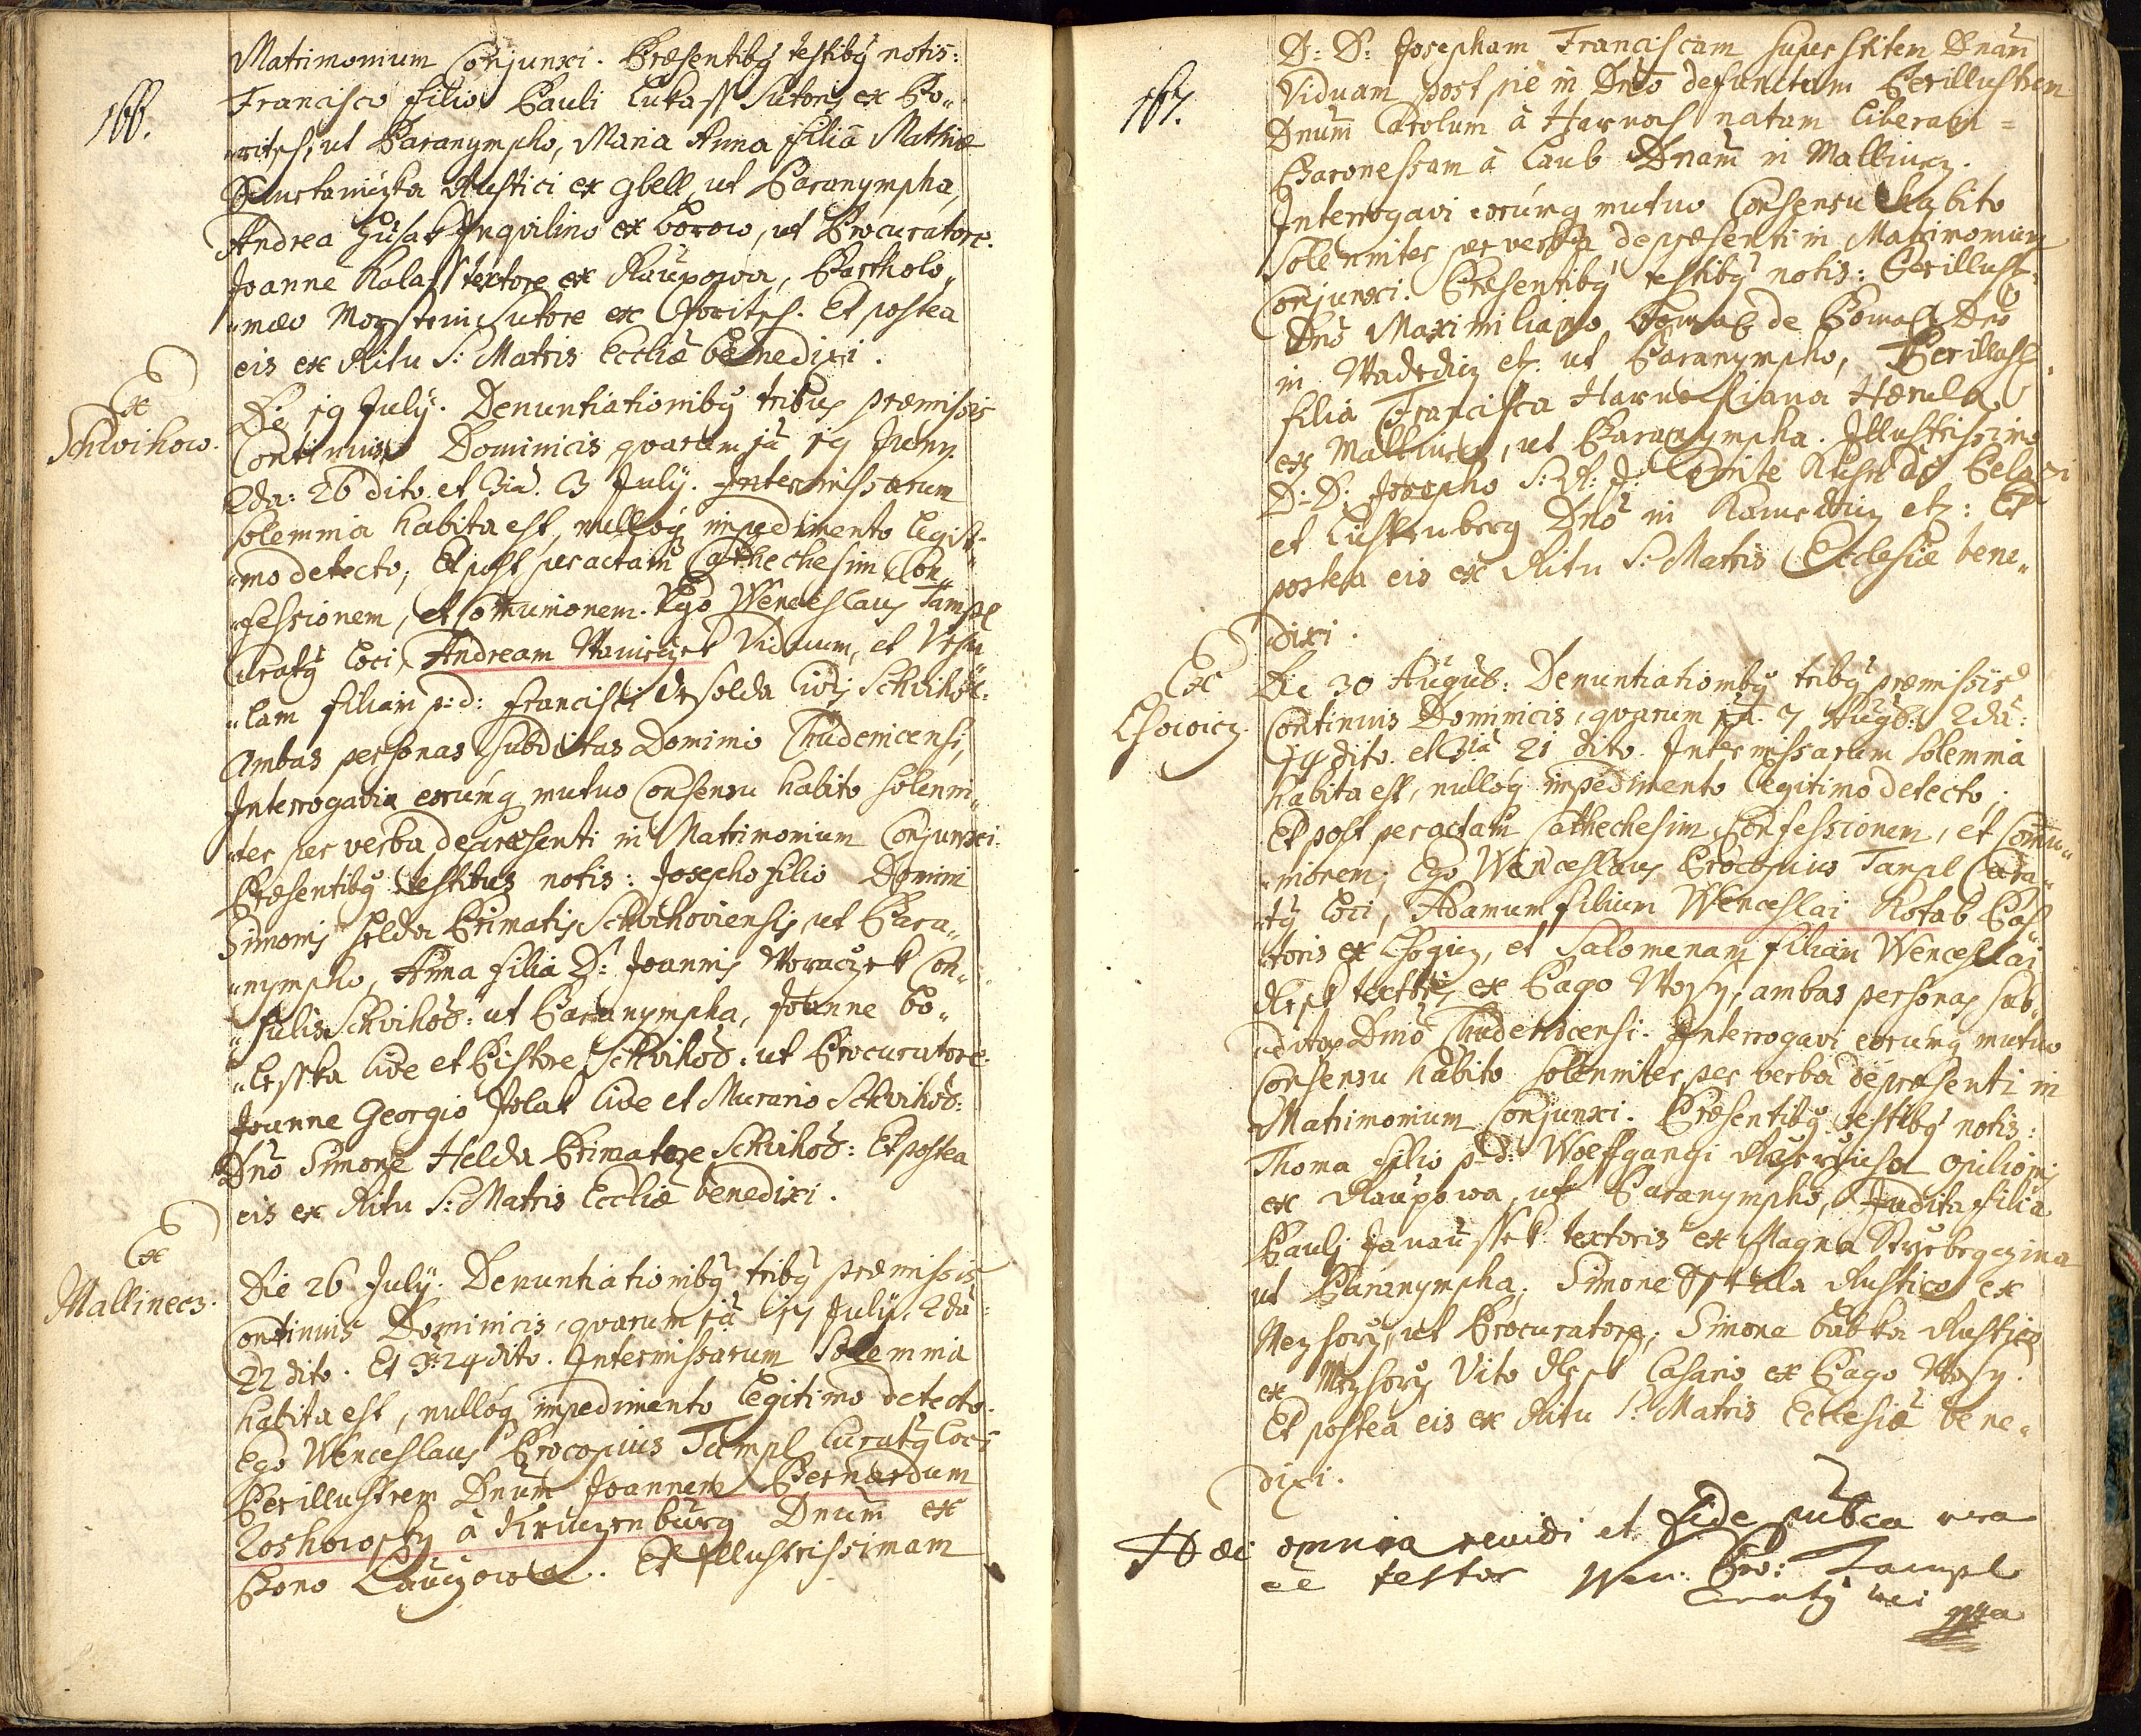 166.
Matrimonium Conjunxi. Præsentibꝰ testibꝰ notis:
Francisco filio Pauli Lukass Sutoris ex Bo„
„ritsch, ut Paranympho, Maria Anna filiâ Mathiæ
Rustici ex gbell, ut Paranympha,
Andrea Husak Inqvilino ex Borow, ut Procuratore.
Joanne Kalass textore ex Raupowa, Bartholo„
„mæo Sutore ex Boritsch. Et postea
eis ex Ritu S: Matris Eccliæ benedixi.
Ex
Schvihow.
Die 19 July. Denuntiationibꝰ tribus præmissis
Continuis Dominicis, qvarum 1ā 19 Juny
2da: 26 dito et 3ia. 3 July. Inter missarum
solemnia habita est, nullóq impedimento legit„
„mo detecto; Et post peractam Cathechesim Con„
„fessionem, et Comunionem. Ego Wenceslaus Tampl
Curatꝰ Loci, Andream Waniczek Viduum, et Ursu
„lam filiam p: d: Francisci Civis Schvihov:
Ambas personas subditas Dominio Chudenicensi,
Interrogavi eorúmq mutuo Consensu habito solenni„
„ter per verba de præsenti in Matrimonium Conjunxi.
Præsentibꝰ testibus notis: Josepho filio Domini
Simonis Helda Primatis Schvihoviensis, ut Para„
„nympho, Anna filia D: Joannis Woraczek Con„
„sulis Schvihov: ut Paranympha, Joanne Bo„
„lesska Cive et Pistore Schvihov: ut Procuratore.
Joanne Georgio Polak Cive et Murario Schvihov:
Dnō Simone Helda Primatore Schvihov: Et postea
eis ex Ritu S: Matris Eccliæ benedixi.
Ex
Mallinecz.
Die 26 July. Denuntiationibꝰ tribꝰ præmissis
Continuis Dominicis, qvarum 1ā 17 July. 2da:
22 dito. Et 3: 24 dito. Inter missarum Solemnia
habita est, nullóq impedimento Legitimo detecto.
Ego Wenceslaus Procopius Tampl Curatꝰ Loci
Perillustrem Dnum Joannem Bernardum
Loshowsky à Kruczenburg Dnum ex
Bono Lauczowa. Et Illustrissimam
167.
D: D: Josepham Franciscam superstitem Dnam
Viduam post pie in Dnō defunctum Perillustrem
Dnum Carolum à Harnoch natam Liberam =
Baronessam à Laub Dnam in Mallinecz.
Interrogavi eorúmq mutuo Consensu habito
solenniter per verba de præsenti in Matrimonium
Conjunxi. Præsentibꝰ testibꝰ notis: Perillust:
Dnō Maximiliano de Dnō
in etz. ut Paranympho, Perillust:
filia Francisca
ex Mallinecz, ut Paranympha. Illustrissimo
D: D: Josepho S: R: J: Comite
et Lichtenberg Dnō in etz: Et
postea eis ex Ritu S: Matris Ecclesiæ bene„
dixi.
Ex
Chowicz.
Die 30 Augus: Denuntiationibꝰ tribꝰ præmissis
Continuis Dominicis, qvarum 1ā. 7 Augus: 2da:
14 dito. et 3iā 21 dito. Inter missarum solemnia
habita est, nullóq impedimento legitimo detecto;
Et post peractam Cathechesim Confessionem, et Comu„
„nionem; Ego Wenceslaus Procopius Tampl Cura„
„tꝰ Loci, Adamum filium Wenceslai Kotab Pas„
„toris ex et Salomenam filiam Wenceslai
textoris ex Pago Wosy, ambas personas sub„
„ditas Dnio Chudenicensi. Interrogavi eorúmq mutuo
Consensu habito solenniter per verba de præsenti in
Matrimonium Conjunxi. Præsentibꝰ testibꝰ notis:
Thoma filio p: d: Wolffgangi opilionis
ex Raupowa, ut Paranympho, Judita filia
Pauli Janaussek textoris ex Magna
ut Paranympha; Simone Rustico ex
Mezhorz, ut Procuratore; Simone Babka Rustico
ex Mezhorz Vito Casario ex Pago Wosy.
Et postea eis ex Ritu S: Matris Ecclesiæ bene„
dixi.
Hæc omnia revidi et fide publica vera
eē testor Wen: Pro: Tampl
Curatꝰ loci mppa